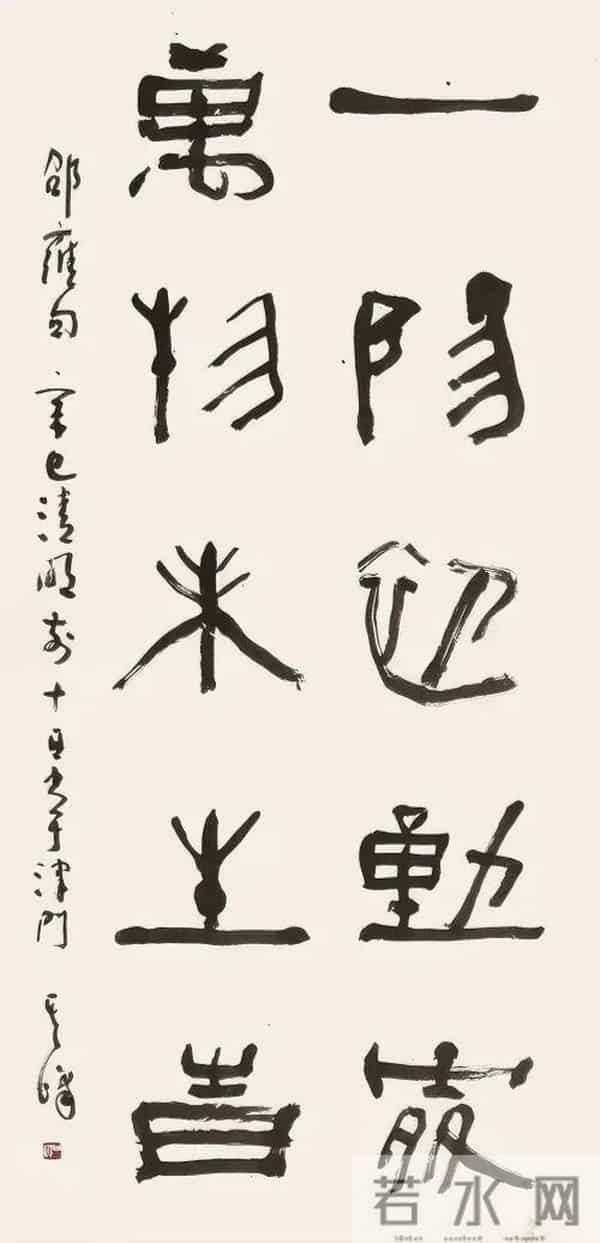 一陽初動處
萬物未生旹
邵雍句 辛巳清明前十日书于津門 其峰
若水网